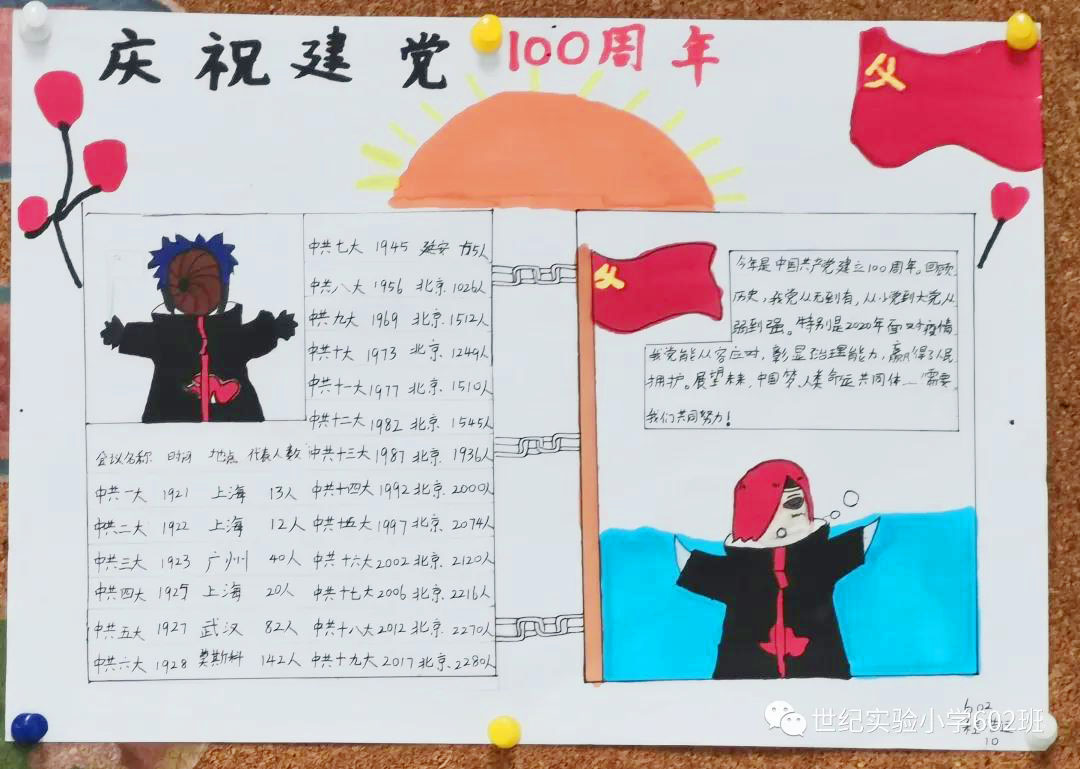 庆祝建党100周年
会议名称 时间 地点 代表人数
中共一大 1921 上海 13人
中共二大 1922 上海 12人
中共三大 1923 广州 40人
中共四大 1925 上海 20人
中共五大 1927 武汉 82人
中共六大 1928 莫斯科 142人
中共七大 1945 延安 5人
中共八大 1956 北京 1026人
中共九大 1969 北京 1512人
中共十大 1973 北京 1249人
中共十一大 1977 北京 1510人
中共十二大 1982 北京 1545人
中共十三大 1987 北京 1936人
中共十四大 1992 北京 2000人
中共十五大 1997 北京 2074人
中共十六大 2002 北京 2120人
中共十七大 2006 北京 2216人
中共十八大 2012 北京 2270人
中共十九大 2017 北京 2280人
今年是中国共产党建立100周年。回顾
历史，我党从无到有，从小党到大党从
弱到强。特别是2020年面对疫情
我党能从容应对，彰显治理能力，赢得了人民
拥护。展望未来，中国梦、人类命运共同体……需要
我们共同努力！
602
10
世纪实验小学602班